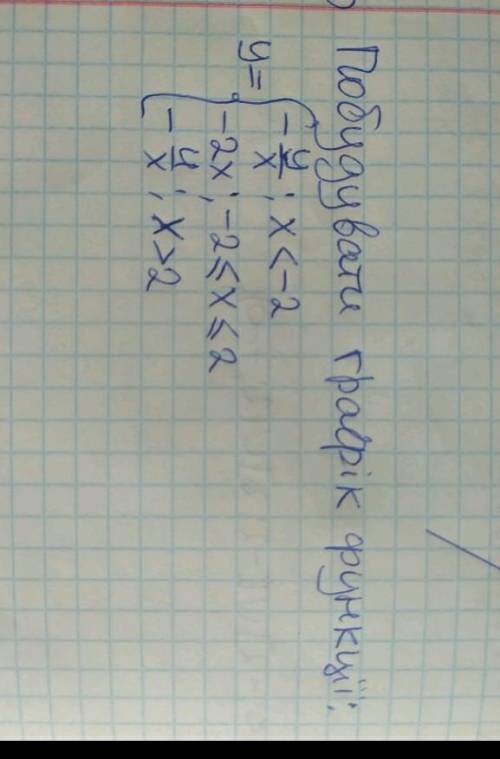 Побудувати графік функції:
y = { -4/x ; x < -2
-2x ; -2 ≤ x ≤ 2
-4/x ; x > 2